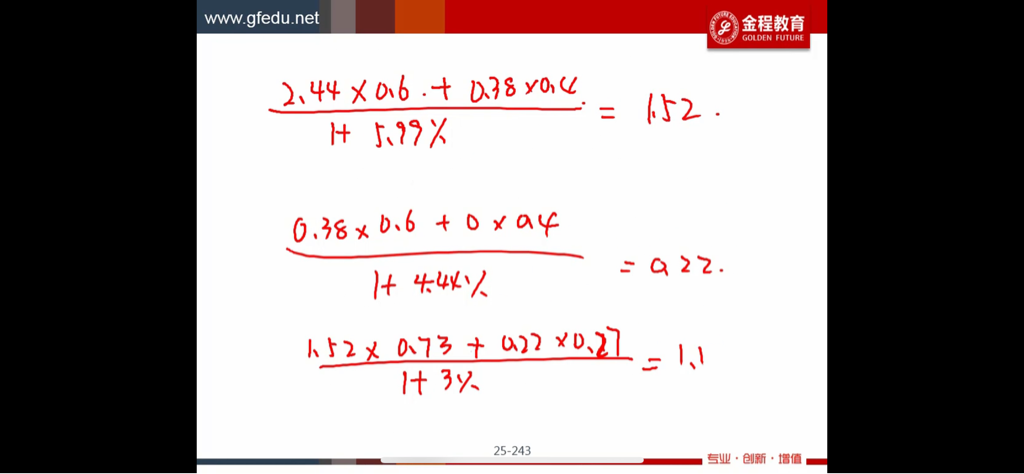 www.gfedu.net
金程教育
GOLDEN FUTURE
2.44 × 0.6 + 0.38 × 0.4
1+ 5.99%
= 1.52.
0.38 × 0.6 + 0 × 0.4
1+ 4.44%
= 0.22.
1.52 × 0.73 + 0.22 × 0.27
1+ 3%
= 1.1
25-243
专业·创新·增值